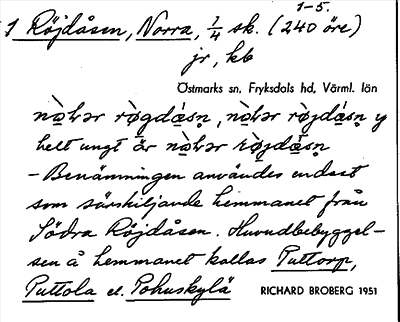 1-5.
1 Röjdåsen, Norra, 1/4 sk. (240 öre)
jr, kb
Östmarks sn, Fryksdals hd, Värml. län
helt ungt är
-Benämningen användes endast
som särskiljande hemmanet från
Södra Röjdåsen. Huvudbebyggel-
sen å hemmanet kallas Puttorp,
Puttola el. Pohuskylä RICHARD BROBERG 1951